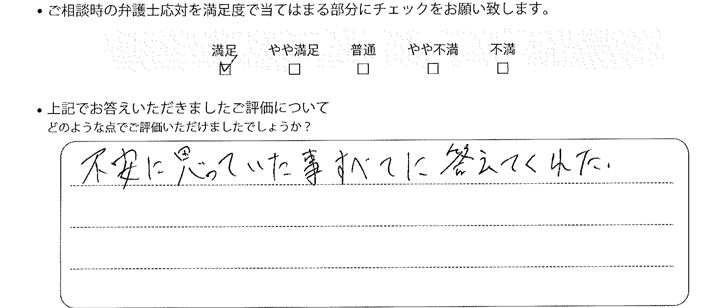 ・ご相談時の弁護士応対を満足度で当てはまる部分にチェックをお願い致します。
満足 やや満足 普通 やや不満 不満
☑ □ □ □ □
・上記でお答えいただきましたご評価について
どのような点でご評価いただけましたでしょうか？
不安に思っていた事すべてに答えてくれた.